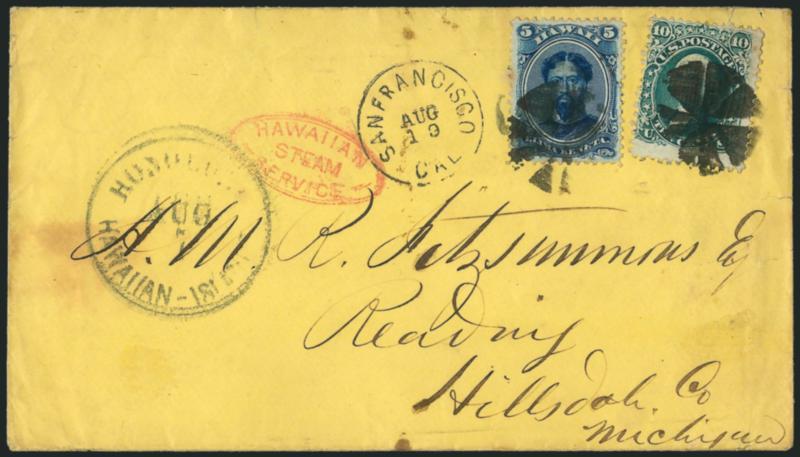 5 HAWAII 5
10 U.S. POSTAGE 10
SAN FRANCISCO
AUG
19
CAL
HAWAIIAN
STEAM
SERVICE
HONOLULU
AUG
HAWAIIAN-ISLANDS
A. M R. Fitzsimmons Esq
Reading
Hillsdale. Co
Michigan